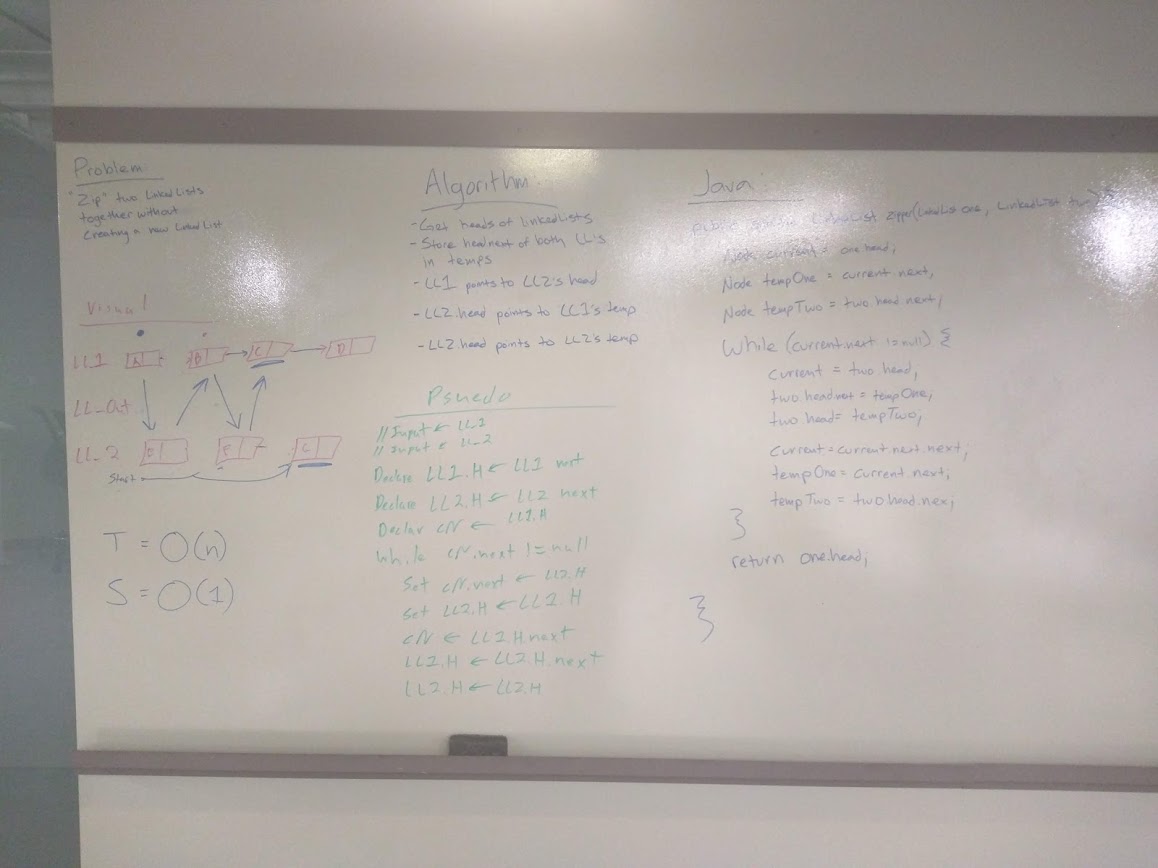 Problem:
"Zip" two Linked Lists
together without
Creating a new Linked List
Visual
LL1 A B C D
LL_Out
LL_2 E F
Start
T = O(n)
S = O(1)
Algorithm:
- Get heads of linkedLists
- Store head.next of both LL's
in temps
- LL1 points to LL2's head
- LL2.head points to LL1's temp
- LL2.head points to LL2's temp
Psuedo
// Input ← LL_1
// Input ← LL_2
Declare LL1.H ← LL1 next
Declare LL2.H ← LL2 next
Declar cN ← LL1.H
While cN.next != null
Set cN.next ← LL2.H
Set LL2.H ← LL1.H
cN ← LL2.H.next
LL2.H ← LL2.H.next
LL2.H ← LL2.H
Java:
public LinkedList zipper(LinkedList one, LinkedList two)
Node current = one.head;
Node tempOne = current.next;
Node tempTwo = two.head.next;
While (current.next != null) {
current = two.head;
two.head.next = tempOne;
two.head = tempTwo;
current = current.next.next;
tempOne = current.next;
tempTwo = two.head.nex;
}
return one.head;
}